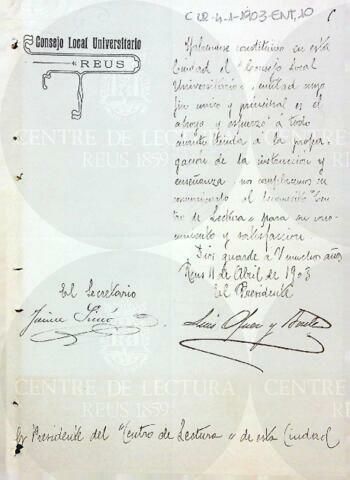 C UR-4-1-1903-ENT,10
Consejo Local Universitario
REUS
Habiendose constituido en esta
Ciudad el "Consejo Local
Universitario", entidad cuyo
fin unico y primordial es el
apoyo y esfuerzo á todo
cuanto tienda á la propa-
gacion de la instruccion y
enseñanza nos complacemos en
comunicarlo al "Cen
tro de Lectura" para su cono-
cimiento y satisfaccion
Dios guarde á V muchos años
Reus 11 de Abril de 1903
El Secretario
El Presidente
Jaime Simó
Luis y
Sr Presidente del "Centro de Lectura" de esta Ciudad
CENTRE DE LECTURA
REUS 1859
CENTRE DE LECTURA
REUS 1859